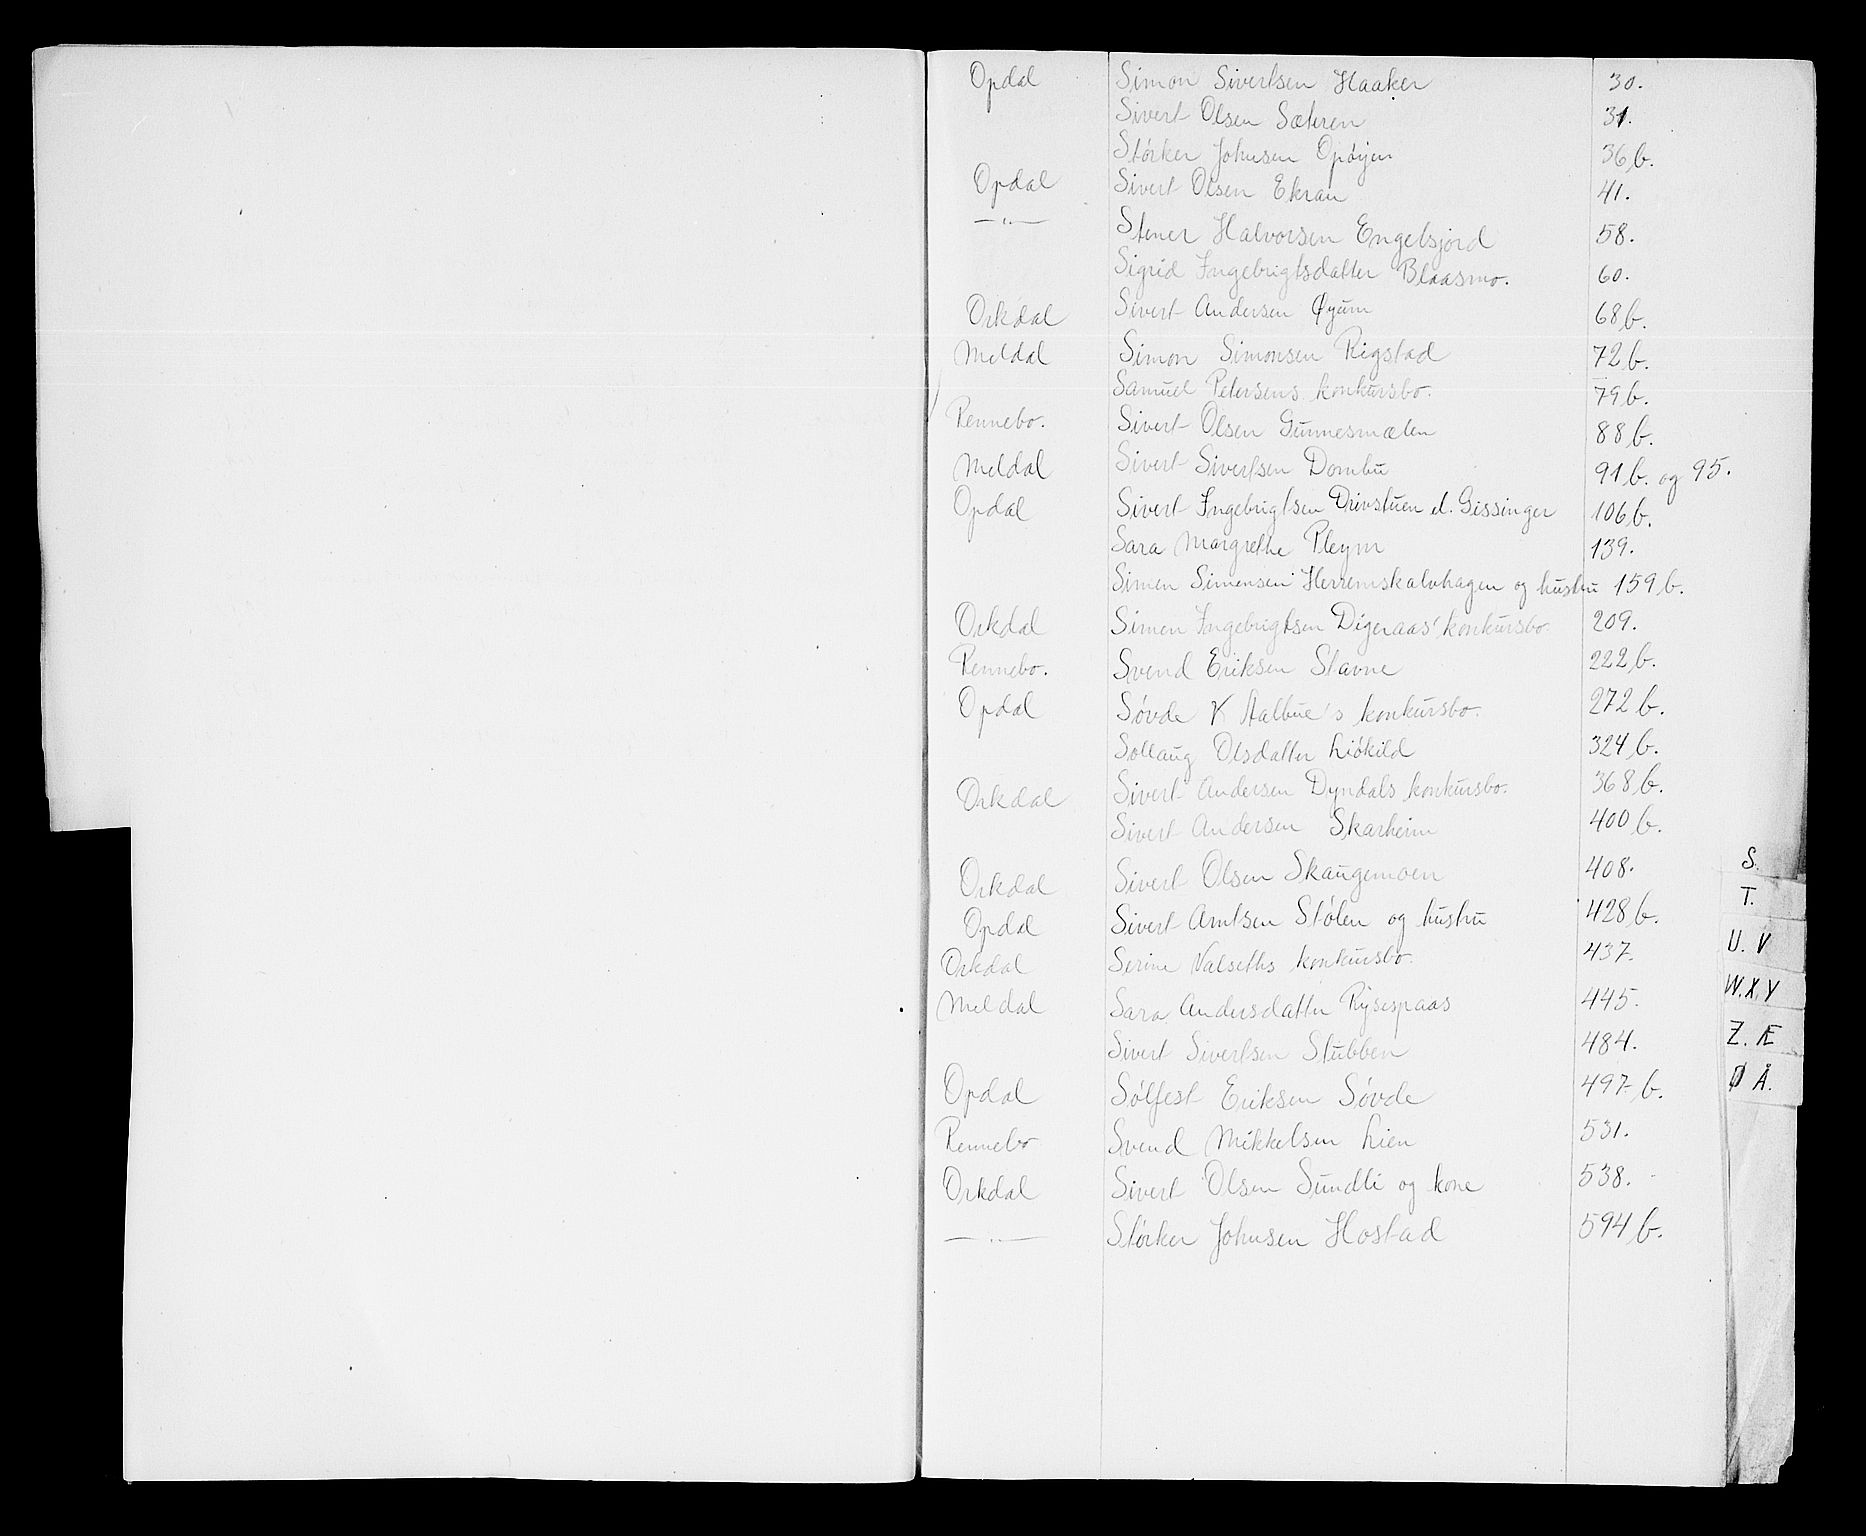 Opdal Simon Sivertsen Haaker 30.
Sivert Olsen Sæteren 31.
Størker Johnsen Opøyen 36 b.
Opdal Sivert Olsen Ekran 41.
—"— Stener Halvorsen Engelsjord 58.
Sigrid Ingebrigtsdatter Blaasmo. 60.
Orkdal Sivert Andersen Øyum 68 b.
Meldal Simon Simonsen Rigstad 72 b.
Samuel Petersens konkursbo. 79 b.
Rennebo. Sivert Olsen Gunnesmælen 88 b.
Meldal Sivert Sivertsen Dombu 91 b. og 95.
Opdal Sivert Ingebrigtsen Drivstuen el. Gissinger 106 b.
Sara Margrethe Pleym 139.
Simen Simensen Herremskalvhagen og hustru 159 b.
Orkdal Simen Ingebrigtsen Digeraas' konkursbo 209.
Rennebo. Svend Eriksen Stavne 222 b.
Opdal Søvde V Aalbue's konkursbo. 272 b.
Sollaug Olsdatter Liökild 324 b.
Orkdal Sivert Andersen Dyndals konkursbo. 368 b.
Sivert Andersen Skarheim 400 b.
Orkdal Sivert Olsen Skaugemoen 408.
Opdal Sivert Arntsen Stølen og hustru 428 b.
Orkdal Serine Valseths konkursbo. 437.
Meldal Sara Andersdatter Rysespaas 445.
Sivert Sivertsen Stubben 484.
Opdal Sølfest Eriksen Søvde 497 b.
Rennebo Svend Mikkelsen Lien 531.
Orkdal Sivert Olsen Sundli og kone 538.
—"— Størker Johnsen Hostad 594 b.
S.
T.
U. V
W.X.Y
Z. Æ
Ø Å.